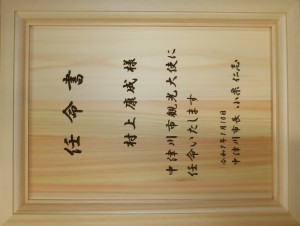 任命書
村上康成様
中津川市観光大使に
任命いたします
令和7年1月18日
中津川市長 小栗仁志